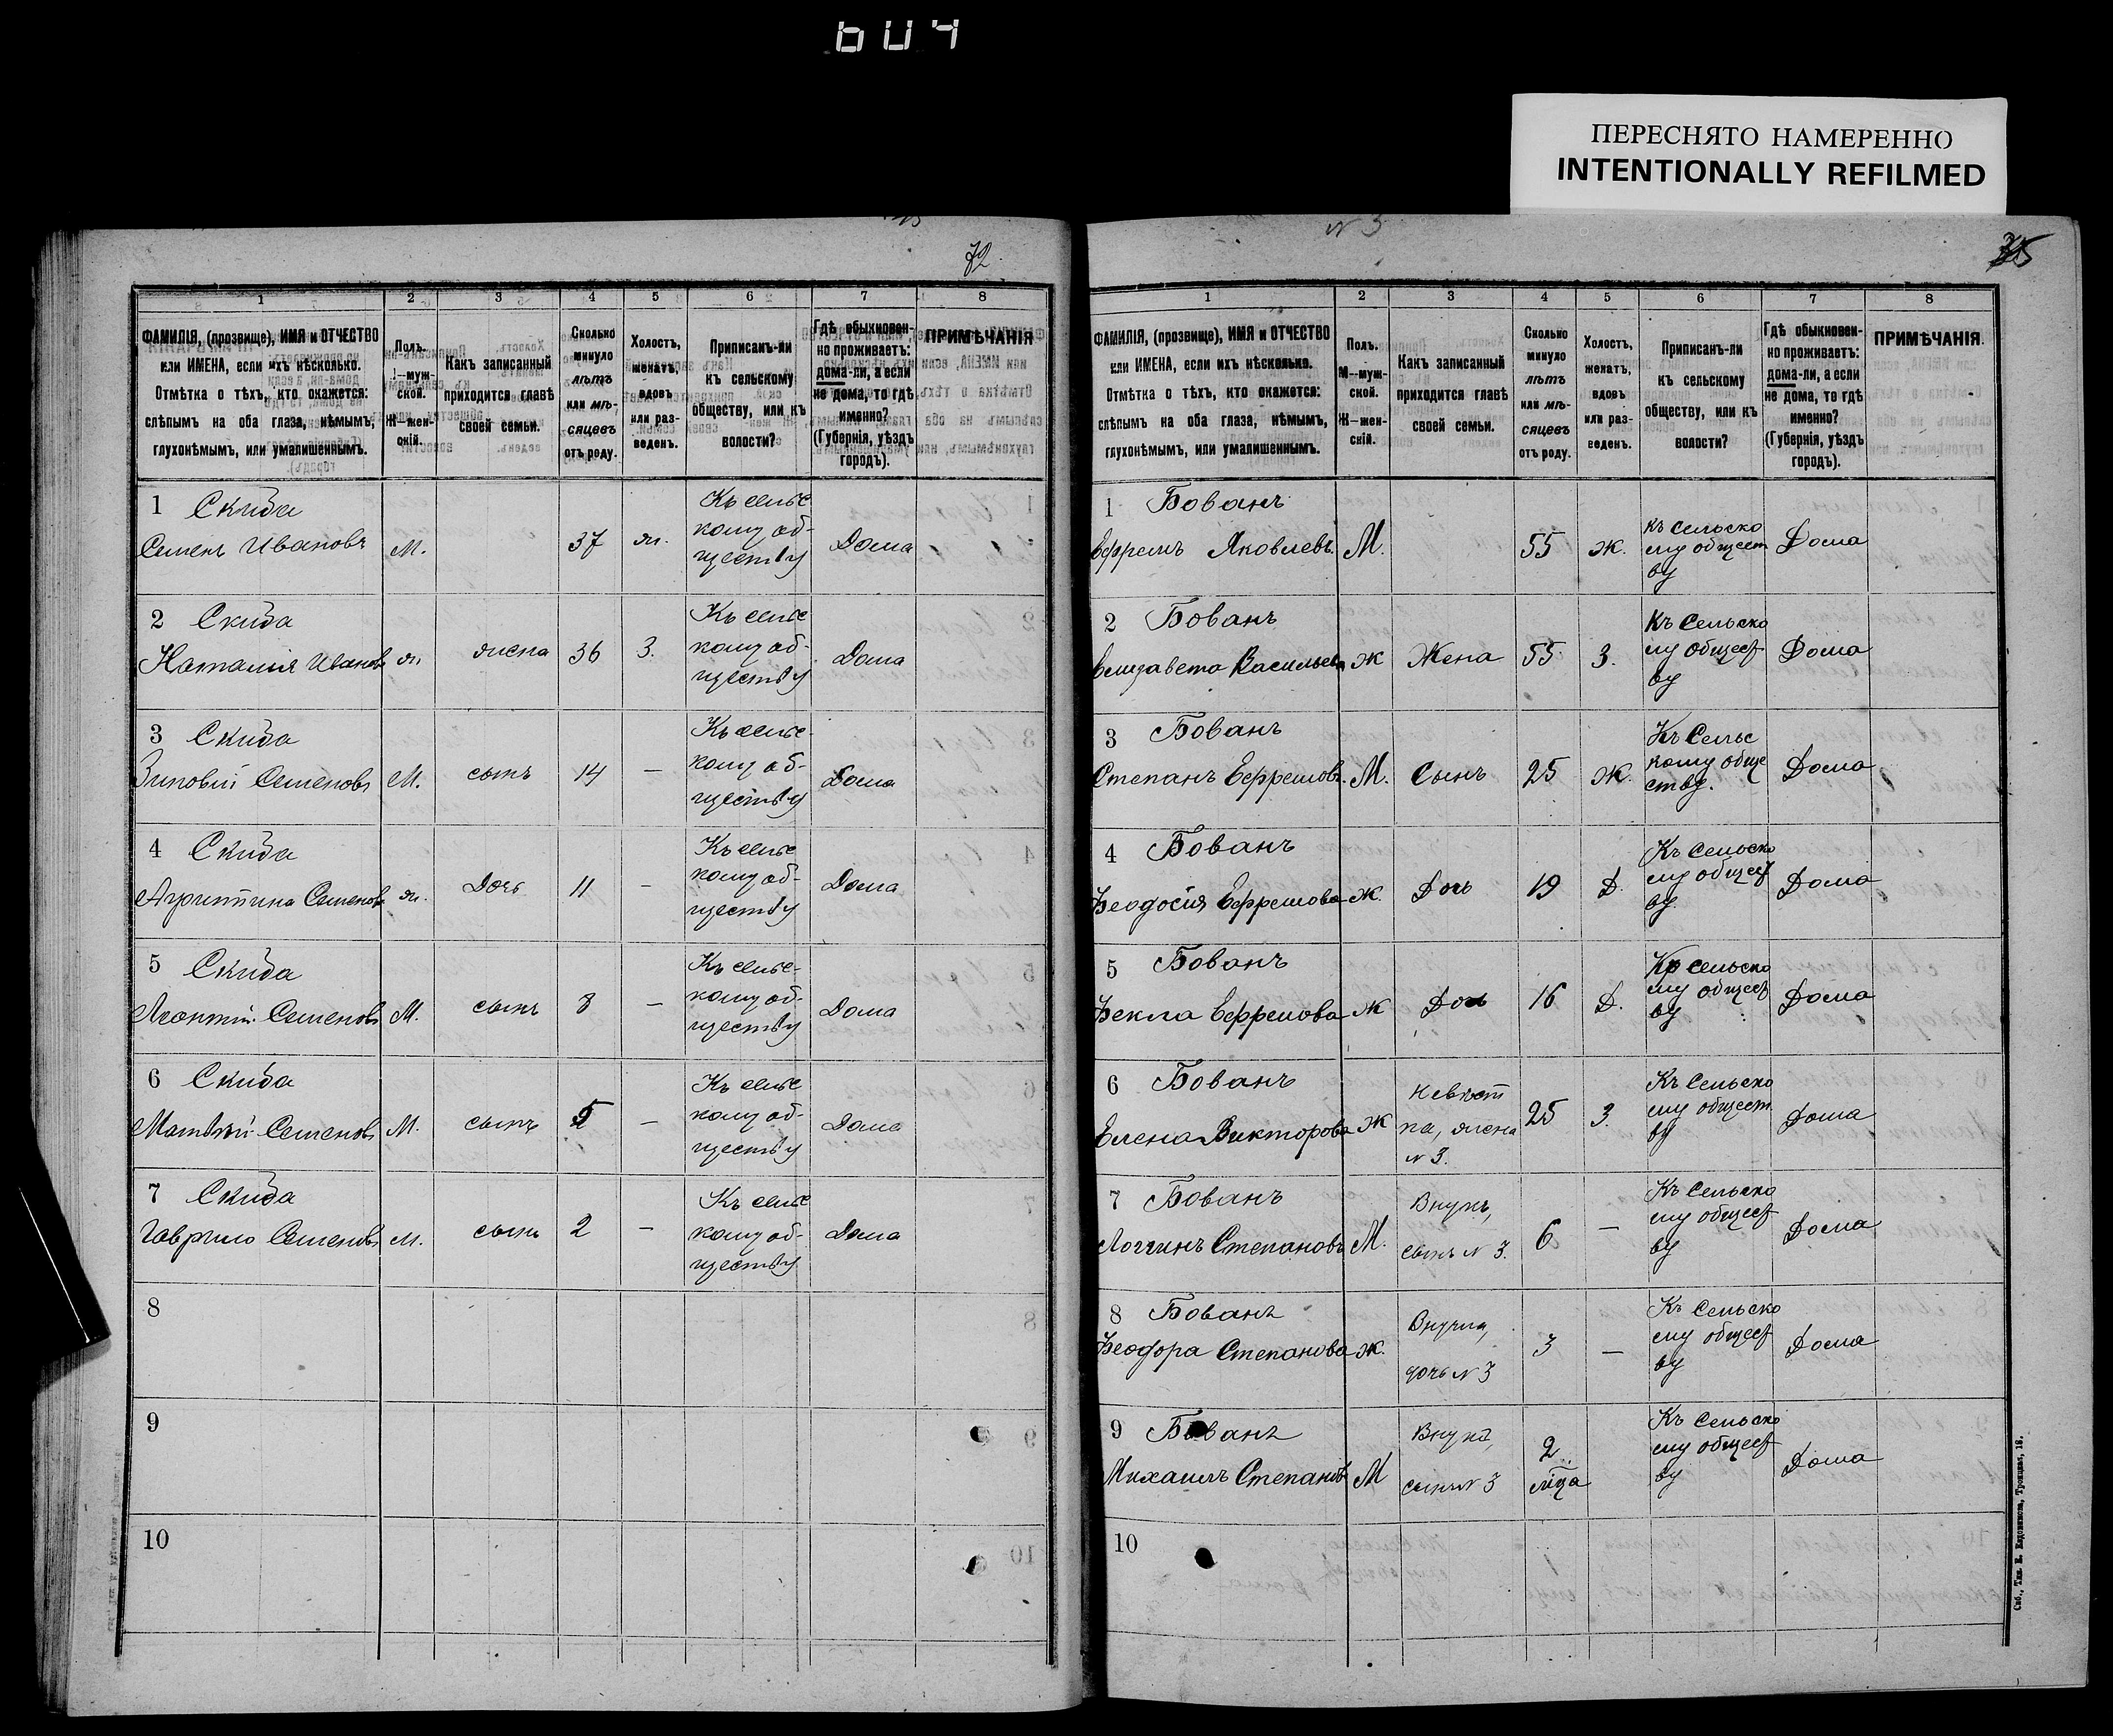 604
ПЕРЕСНЯТО НАМЕРЕННО
INTENTIONALLY REFILMED
72.
1
2
3
4
5
6
7
8
ФАМИЛІЯ, (прозвище), ИМЯ и ОТЧЕСТВО
или ИМЕНА, если ихъ нѣсколько.
Отмѣтка о тѣхъ, кто окажется:
слѣпымъ на оба глаза, нѣмымъ,
глухонѣмымъ, или умалишеннымъ.
Полъ.
М—муж-
ской.
Ж—жен-
скій.
Какъ записанный
приходится главѣ
своей семьи.
Сколько
минуло
лѣтъ
или мѣ-
сяцевъ
отъ роду.
Холостъ,
женатъ,
вдовъ
или раз-
веденъ.
Приписанъ-ли
къ сельскому
обществу, или къ
волости?
Гдѣ обыкновен-
но проживаетъ:
дома-ли, а если
не дома, то гдѣ
именно?
(Губернія, уѣздъ
городъ).
ПРИМѢЧАНІЯ
1 Скиба
Семенъ Ивановъ М. 37 ж. Къ сельс
кому об-
ществу Дома
2 Скиба
Наталія Иванов ж. жена 36 З. Къ сельс
кому об-
ществу Дома
3 Скиба
Зиновій Семеновъ М. сынъ 14 — Къ сельс-
кому об-
ществу Дома
4 Скиба
Агрипина Семенов ж. Дочь 11 - Къ сельс
кому об-
ществу Дома
5 Скиба
Леонтій Семеновъ М. сынъ 8 — Къ сельс-
кому об-
ществу Дома
6 Скиба
Матвѣй Семеновъ М. сынъ 5 — Къ сельс
кому об-
ществу Дома
7 Скиба
Гаврило Семеновъ М. сынъ 2 — Къ сельс
кому об-
ществу Дома
8
9
10
N 3
1
2
3
4
5
6
7
8
ФАМИЛІЯ, (прозвище), ИМЯ и ОТЧЕСТВО
или ИМЕНА, если ихъ нѣсколько.
Отмѣтка о тѣхъ, кто окажется:
слѣпымъ на оба глаза, нѣмымъ,
глухонѣмымъ, или умалишеннымъ.
Полъ.
М—муж-
ской.
Ж—жен-
скій.
Какъ записанный
приходится главѣ
своей семьи.
Сколько
минуло
лѣтъ
или мѣ-
сяцевъ
отъ роду.
Холостъ,
женатъ,
вдовъ
или раз-
веденъ.
Приписанъ-ли
къ сельскому
обществу, или къ
волости?
Гдѣ обыкновен-
но проживаетъ:
дома-ли, а если
не дома, то гдѣ
именно?
(Губернія, уѣздъ
городъ).
ПРИМѢЧАНІЯ.
1 Бованъ
Ефремъ Яковлевъ. М. 55 ж. къ сельско
му общест
ву Дома
2 Бованъ
Елизавета Васильева ж Жена 55 З. Къ Сельско
му общест
ву Дома
3 Бованъ
Степанъ Ефремовъ. М. Сынъ 25 Ж. Къ Сельс
кому обще
ству. Дома
4 Бованъ
Ѳеодосія Ефремова ж. Дочь 19 Д. Къ Сельско
му общест
ву Дома
5 Бованъ
Ѳекла Ефремова ж Дочь 16 Д. Къ сельско
му общест
ву Дома
6 Бованъ
Елена Викторова ж Невѣст
ка, жена
N 3. 25 З. Къ Сельско
му общест.
ву Дома
7 Бованъ
Логгинъ Степановъ М. Внукъ,
сынъ N 3. 6 — Къ Сельско
му общест
ву Дома
8 Бованъ
Ѳеодора Степанова ж. Внучка,
дочь N 3 3 — Къ Сельско
му общест
ву Дома
9 Бованъ
Михаилъ Степановъ М Внукъ,
сынъ N 3 2
мца Къ Сельско
му общест
ву Дома
10